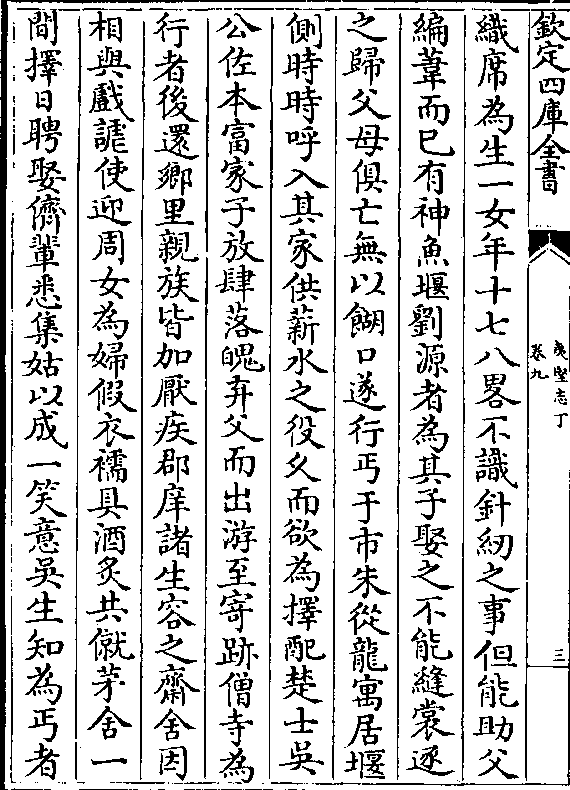 欽定四庫全書
夷堅志丁
卷九
三
織席為生一女年十七八畧不識針紉之事但能助父
編葦而已有神魚堰劉源者為其子娶之不能縫裳逐
之歸父母俱亡無以餬口遂行丐于市朱從龍寓居堰
側時時呼入其家供薪水之役久而欲為擇配楚士吳
公佐本富家子放肆落魄弃父而出游至寄跡僧寺為
行者後還鄉里親族皆加厭疾郡庠諸生容之齋舍因
相與戲謔使迎周女為婦假衣襦具酒炙共僦茅舍一
間擇日聘娶儕輩悉集姑以成一笑意吳生知為丐者